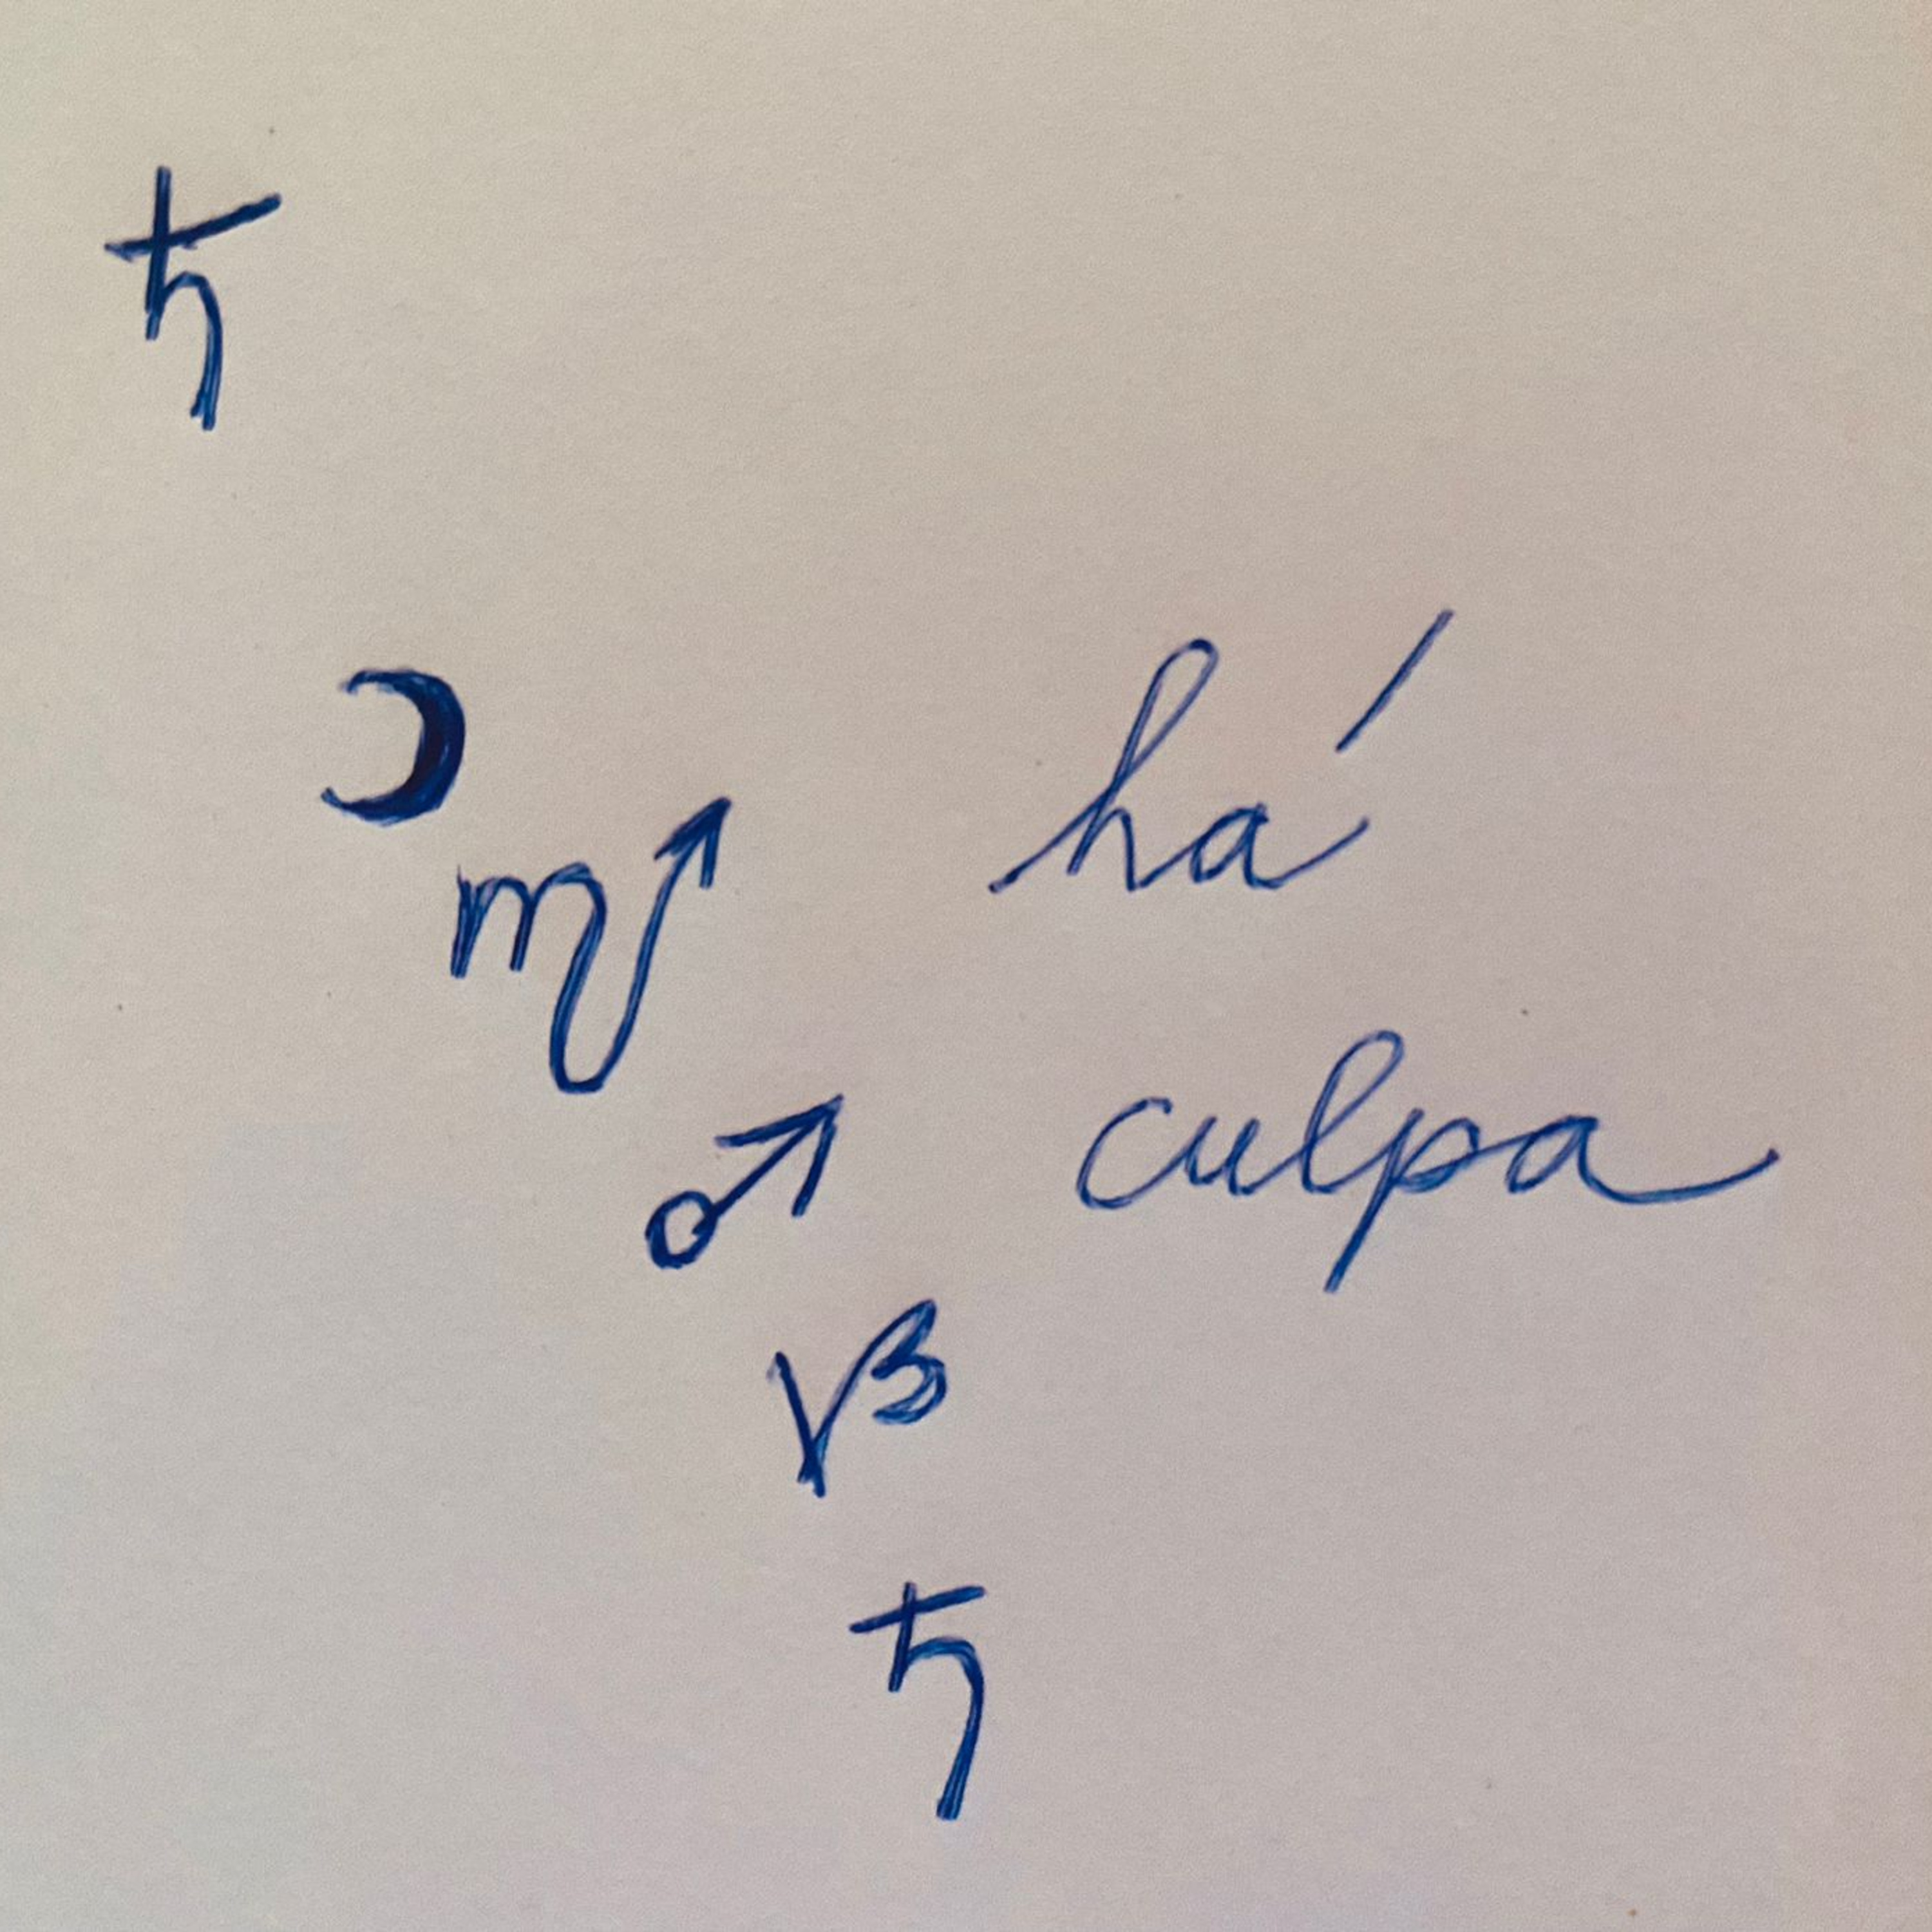 ♄
☽
♏ há
♂ culpa
♑
♄